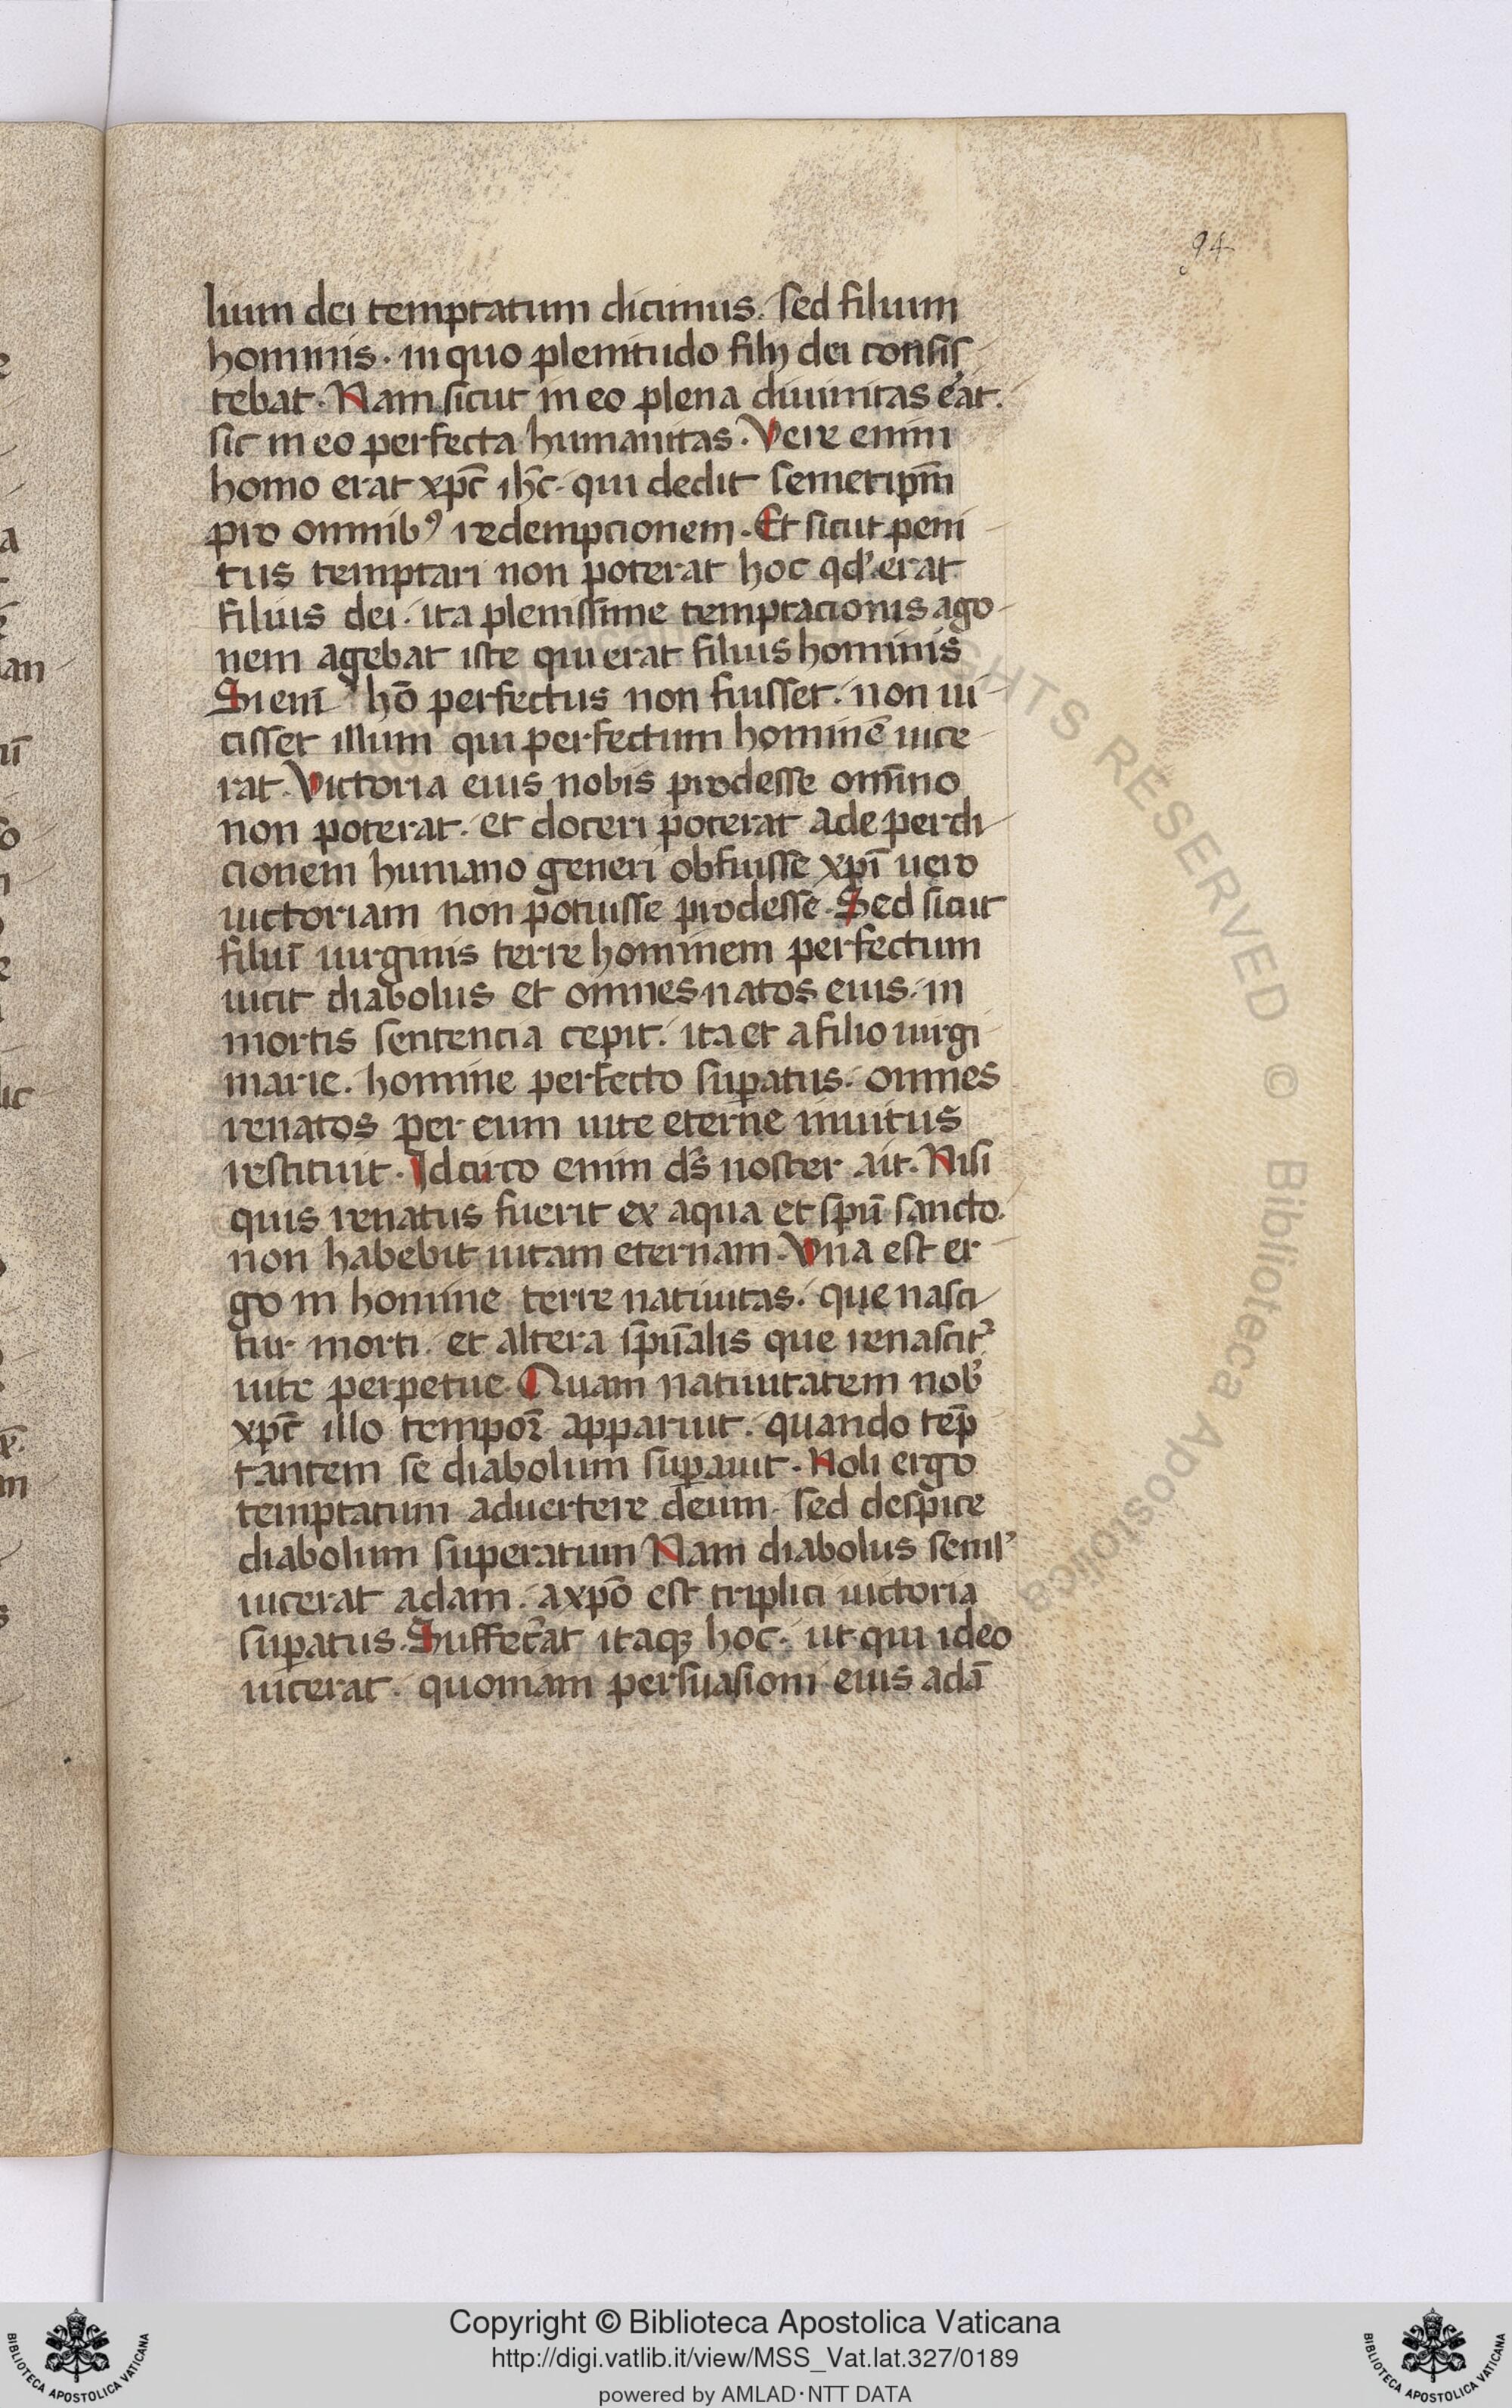 94
lium dei temptatum dicimus. sed filium
hominis. in quo plenitudo filij dei consis
tebat. Nam sicut in eo plena diuinitas eat.
sic in eo perfecta humanitas. Vere enim
homo erat xpc̄ ih̄c. qui dedit semetipm̄
pro omnibꝰ redempcionem. Et sicut peni
tus temptari non poterat hoc qd' erat
filius dei. ita plenissime temptacionis ago
nem agebat iste qui erat filius hominis
Si enī hō perfectus non fuisset. non ui
cisset illum qui perfectum hominē uice
rat. Victoria eius nobis prodesse om̄ino
non poterat. et doceri poterat ade perdi
cionem humano generi obfuisse xpī uero
uictoriam non potuisse prodesse. Sed sicut
filiuī uirginis terre hominem perfectum
uicit diabolus et omnes natos eius. in
mortis sentencia cepit. ita et a filio uirgi
marie. homine perfecto supatus. omnes
renatos per eum uite eterne inuitus
restituit. Idcirco enim dn̄s noster ait. Nisi
quis renatus fuerit ex aqua et spū sancto.
non habebit uitam eternam. Vna est er
go in homine terre natiuitas. que nasci
tur morti. et altera spūalis que renascit᷑
uite perpetue. Quam natiuitatem nob'
xpc̄ illo tempoꝝ apparuit. quando tēp
tantem se diabolum supauit. Noli ergo
temptatum aduertere deum. sed despice
diabolum superatum Nam diabolus semel'
uicerat adam. a xpō est triplici uictoria
supatus. Suffec̄at itaqꝫ hoc. ut qui ideo
uicerat. quoniam persuasioni eius adā
RIGHTS RESERVED © Biblioteca Apostolica
Copyright © Biblioteca Apostolica Vaticana
http://digi.vatlib.it/view/MSS_Vat.lat.327/0189
powered by AMLAD·NTT DATA
BIBLIOTECA APOSTOLICA VATICANA
BIBLIOTECA APOSTOLICA VATICANA